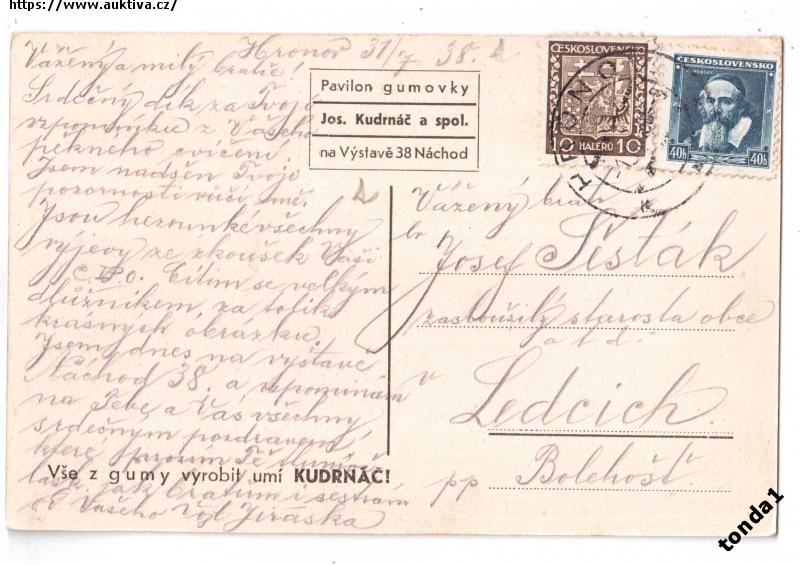 https://www.auktiva.cz/
Hronov 31/7 38.
Vážený a milý bratře!
Srdečný dík za Tvoji
vzpomínku z Vašeho
pěkného cvičení.
Jsem nadšen Tvojí
pozorností vůči mně.
Jsou hezounké všechny
výjevy ze zkoušek Vaší
C.P.O. Cítím se velkým
dlužníkem za tolik
krásných obrázků.
Jsem dnes na výstavě
Náchod 38. a vzpomínám
na Tebe a Vás všechny
srdečným pozdravem,
které
lask. jak bratrům i sestrám
Vašeho Vojt Jiráska
Pavilon gumovky
Jos. Kudrnáč a spol.
na Výstavě 38 Náchod
Vše z gumy vyrobit umí KUDRNÁČ!
ČESKOSLOVENSKO
10 HALÉŘŮ 10
ČESKOSLOVENSKO
40h 40h
HRONOV
Vážený bratr
br Josef Šisták
zasloužilý starosta obce
a t d.
v Ledcích.
pp Bolehošť
tonda1